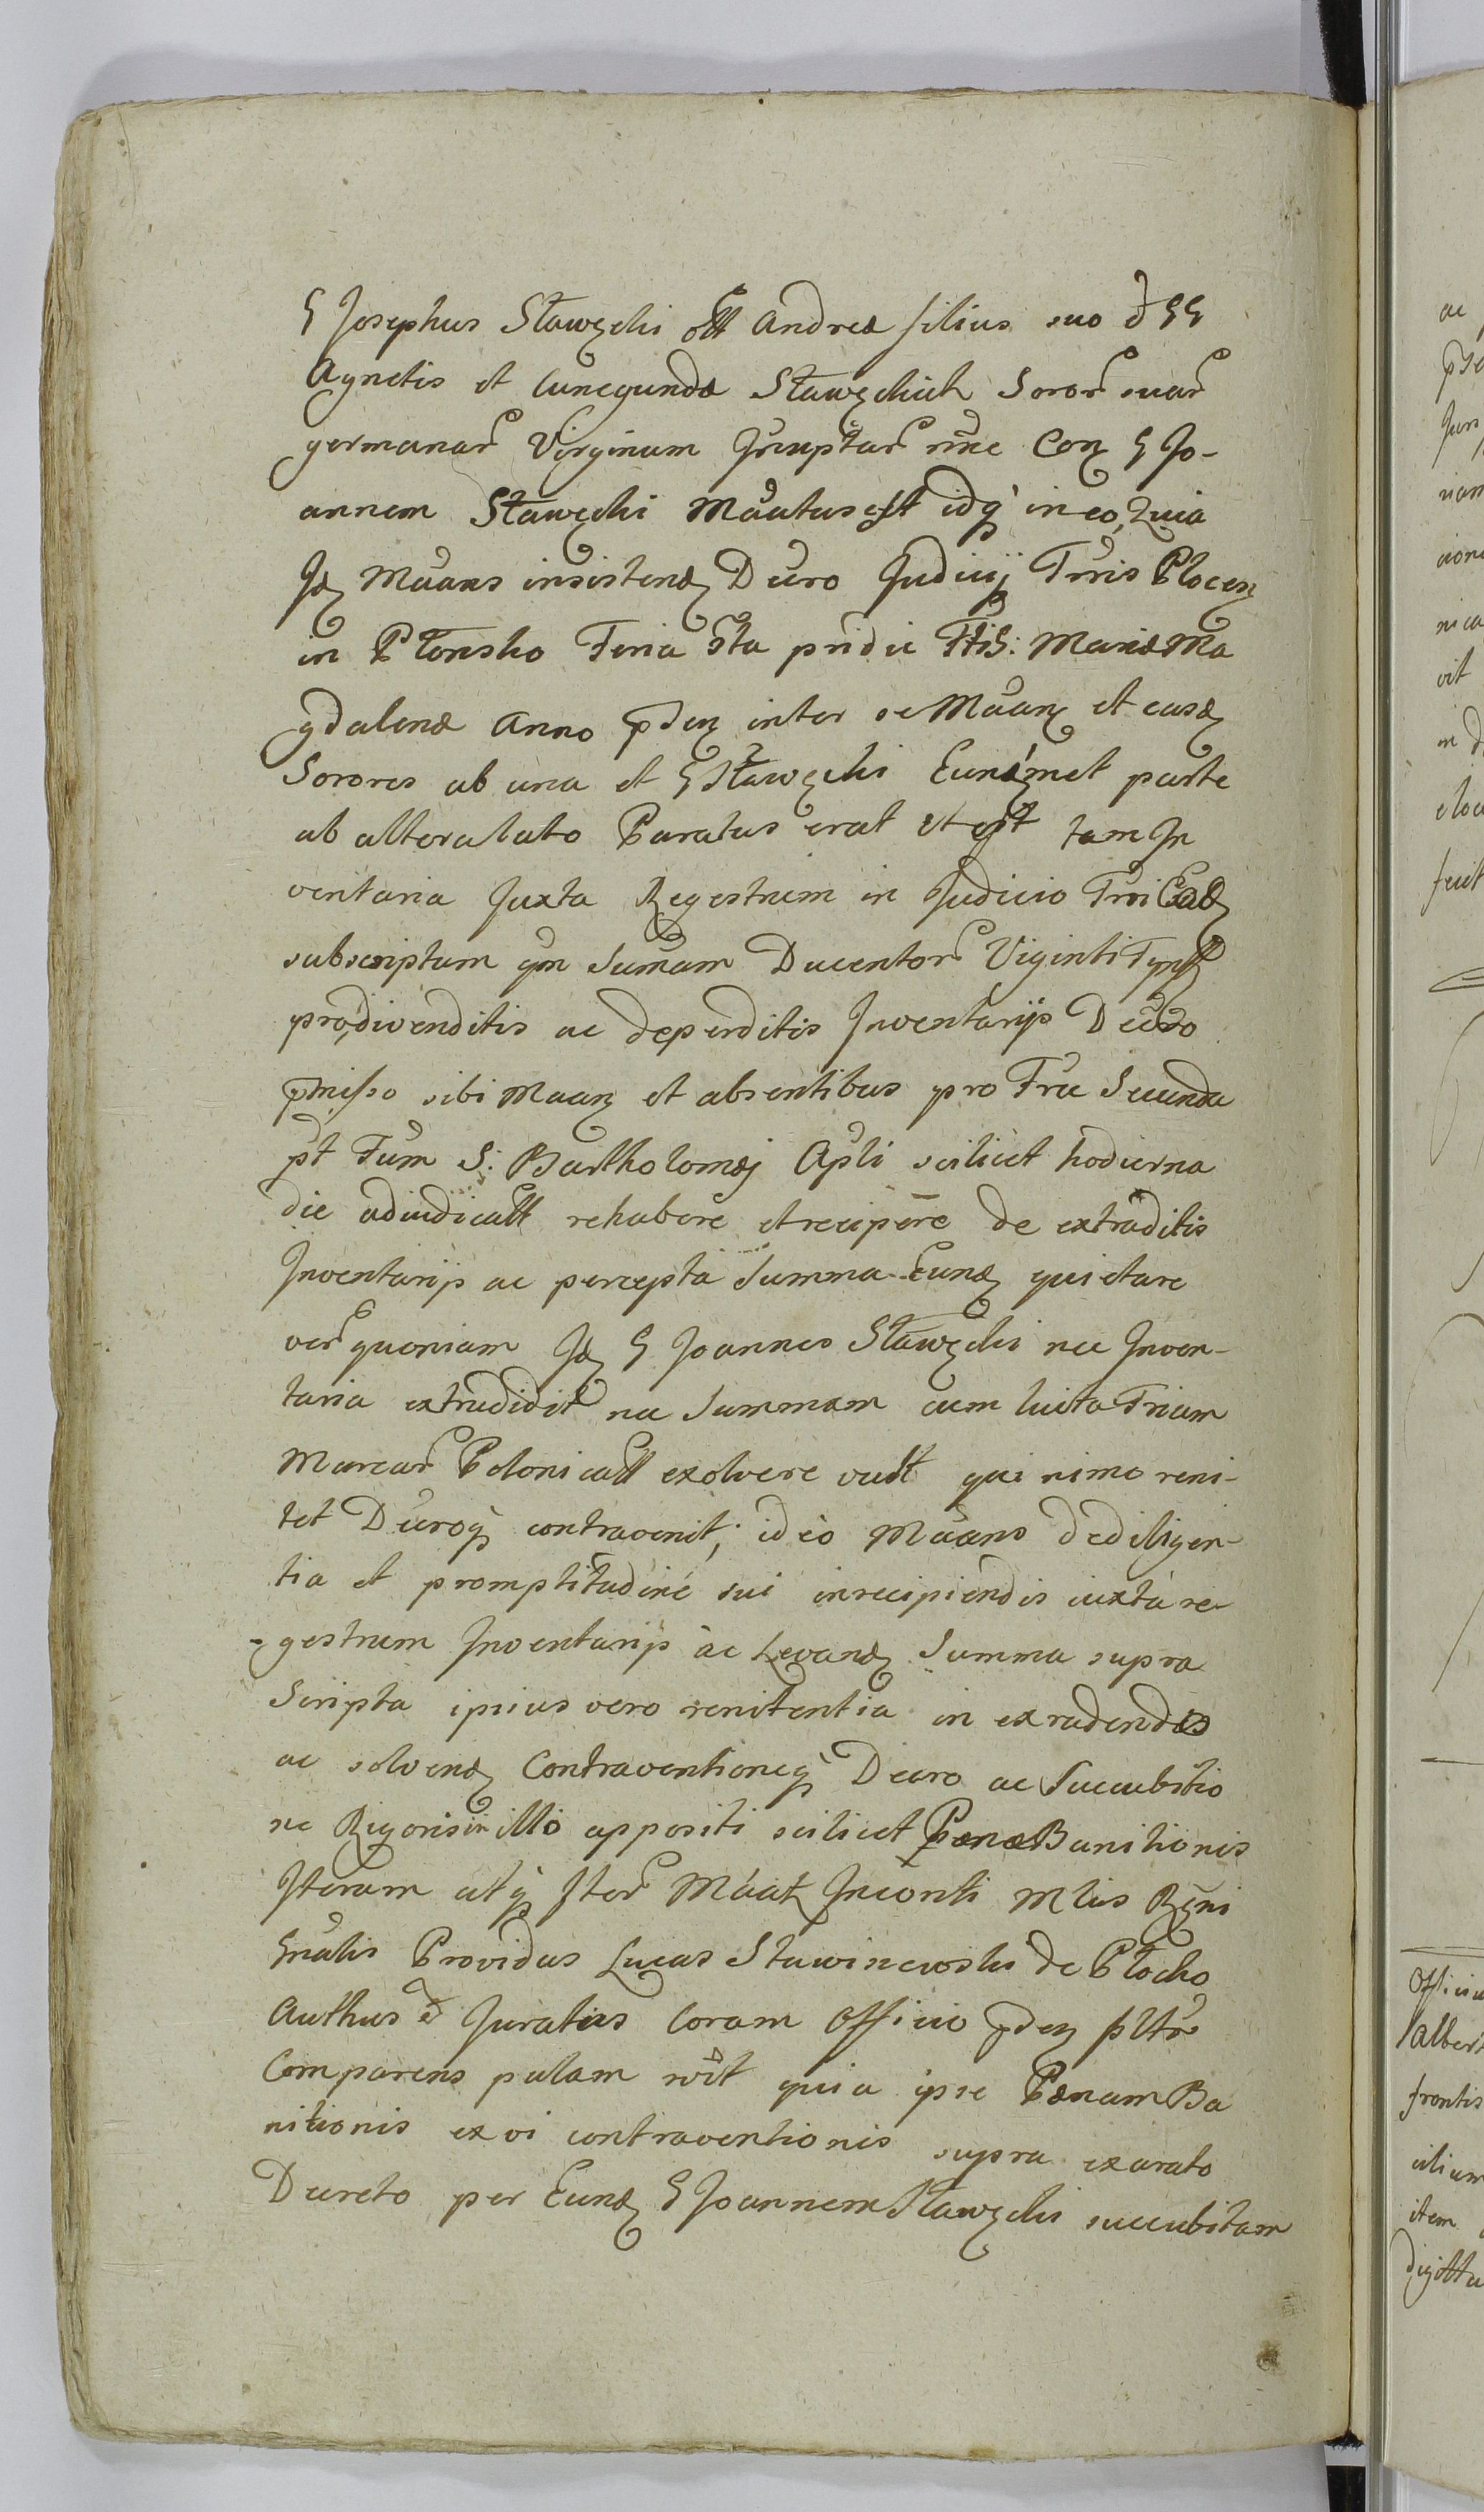 G Josephus Sławęcki olt Andreæ filius suo et GG
Agnetis et Cunegundæ Sławęckich Soror suar
germanar Virginum Jnnuptar nõie Con G Jo-
annem Sławęcki Mãatus est idq in eo, Quia
Jdę Mãans insistendę Dẽcro Judicij Tẽrris Plocen
in Płonsko Feria 6ta pridie Fti S: Mariæ Ma
gdalenæ Anno p̃den inter se Mãan et easdę
Sorores ab una et G Sławęcki Eundemmet parte
ab altera lato Paratus erat et est tam Jn
ventaria Juxta Regestrum in Judicio Tẽrri Eodę
subscriptum qm Sum̃am Ducentor Viginti Tynff
pro divenditis ac deperditis Jnventarijs Dẽcreto
p̃misso sibi Mãan et absentibus pro Fria Secunda
p̃t Fum S: Bartholomæj Apl̃i scilicet hodierna
die adiudicatt rehabere et recipere de extraditis
Jnventarijs ac percepta Summa Eundę quietare
ver quoniam Jdę G Joannes Sławęcki nec Jnven-
taria extradidit nec Summam cum luito Trium
Marcar Polonicall exolvere vult quinimo reni-
tet Dẽcroq contravenit; ideo Mãans de diligen-
tia et promptitudine sui in recipiendis iuxta re-
gestrum Jnventarijs ac Levandę Summa supra
Scripta ipsius vero renitentia in extradendis
ac solvendę Contraventioneq Dẽcro ac Succubitio
ne Rigoris in illo appositi scilicet Pænæ Banitionis
Jterum atq Jter Mãatę Jnconti Mlis Regni
Gñalis Providus Lucas Stawinewski de Płocko
Authus et Juratus Coram Officio p̃den p̃ltr
Comparens palam rõit quia ipse Pænam Ba
nitionis ex vi contraventionis supra exarato
Decreto per Eundę G Joannem Sławęcki succubitam